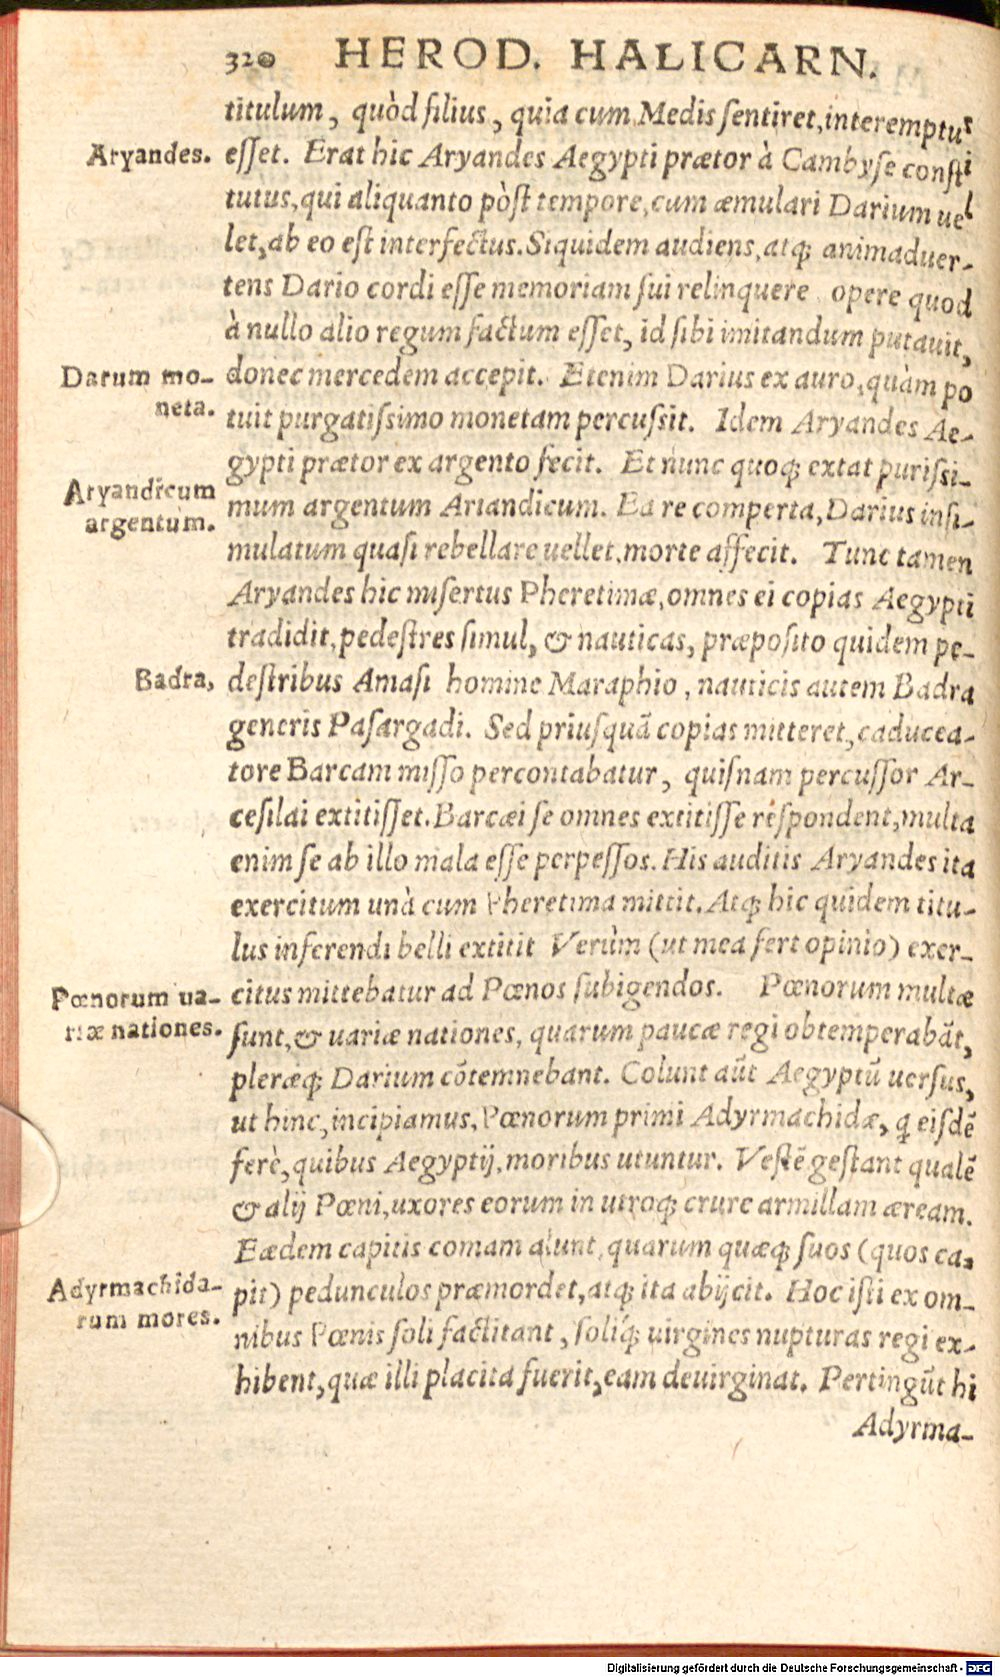 320 HEROD. HALICARN.
titulum, quòd filius, quia cum Medis ſentiret, interemptus
Aryandes. eſſet. Erat hic Aryandes Aegypti prætor à Cambyſe conſti
tutus, qui aliquanto pòſt tempore, cum æmulari Darium uel
let, ab eo eſt interfectus. Siquidem audiens, atq; animaduer-
tens Dario cordi eſſe memoriam ſui relinquere opere quod
à nullo alio regum factum eſſet, id ſibi imitandum putauit,
Darium mo- donec mercedem accepit. Etenim Darius ex auro, quàm po
neta. tuit purgatiſsimo monetam percuſsit. Idem Aryandes Ae-
gypti prætor ex argento fecit. Et nunc quoq; extat puriſsi-
Aryandicum mum argentum Ariandicum. Ea re comperta, Darius inſi-
argentum. mulatum quaſi rebellare uellet, morte affecit. Tunc tamen
Aryandes hic miſertus Pheretimæ, omnes ei copias Aegypti
tradidit, pedeſtres ſimul, & nauticas, præpoſito quidem pe-
Badra, deſtribus Amaſi homine Maraphio, nauticis autem Badra
generis Paſargadi. Sed priuſquã copias mitteret, caducea-
tore Barcam miſſo percontabatur, quiſnam percuſſor Ar-
ceſilai extitiſſet. Barcæi ſe omnes extitiſſe reſpondent, multa
enim ſe ab illo mala eſſe perpeſſos. His auditis Aryandes ita
exercitum unà cum Pheretima mittit. Atq; hic quidem titu-
lus inferendi belli extitit Verùm (ut mea fert opinio) exer-
Pœnorum ua- citus mittebatur ad Pœnos ſubigendos. Pœnorum multæ
riæ nationes. ſunt, & uariæ nationes, quarum paucæ regi obtemperabãt,
pleræq; Darium cõtemnebant. Colunt aũt Aegyptũ uerſus,
ut hinc, incipiamus, Pœnorum primi Adyrmachidæ, q̃ eiſdẽ
ferè, quibus Aegyptij, moribus utuntur. Veſtẽ geſtant qualẽ
& alij Pœni, uxores eorum in utroq; crure armillam æream.
Eædem capitis comam alunt, quarum quæq; ſuos (quos ca-
Adyrmachida- pit) pedunculos præmordet, atq; ita abijcit. Hoc iſti ex om-
rum mores. nibus Pœnis ſoli factitant, ſoliq́; uirgines nupturas regi ex-
hibent, quæ illi placita fuerit, eam deuirginat. Pertingũt hi
Adyrma-
Digitalisierung gefördert durch die Deutsche Forschungsgemeinschaft - DFG